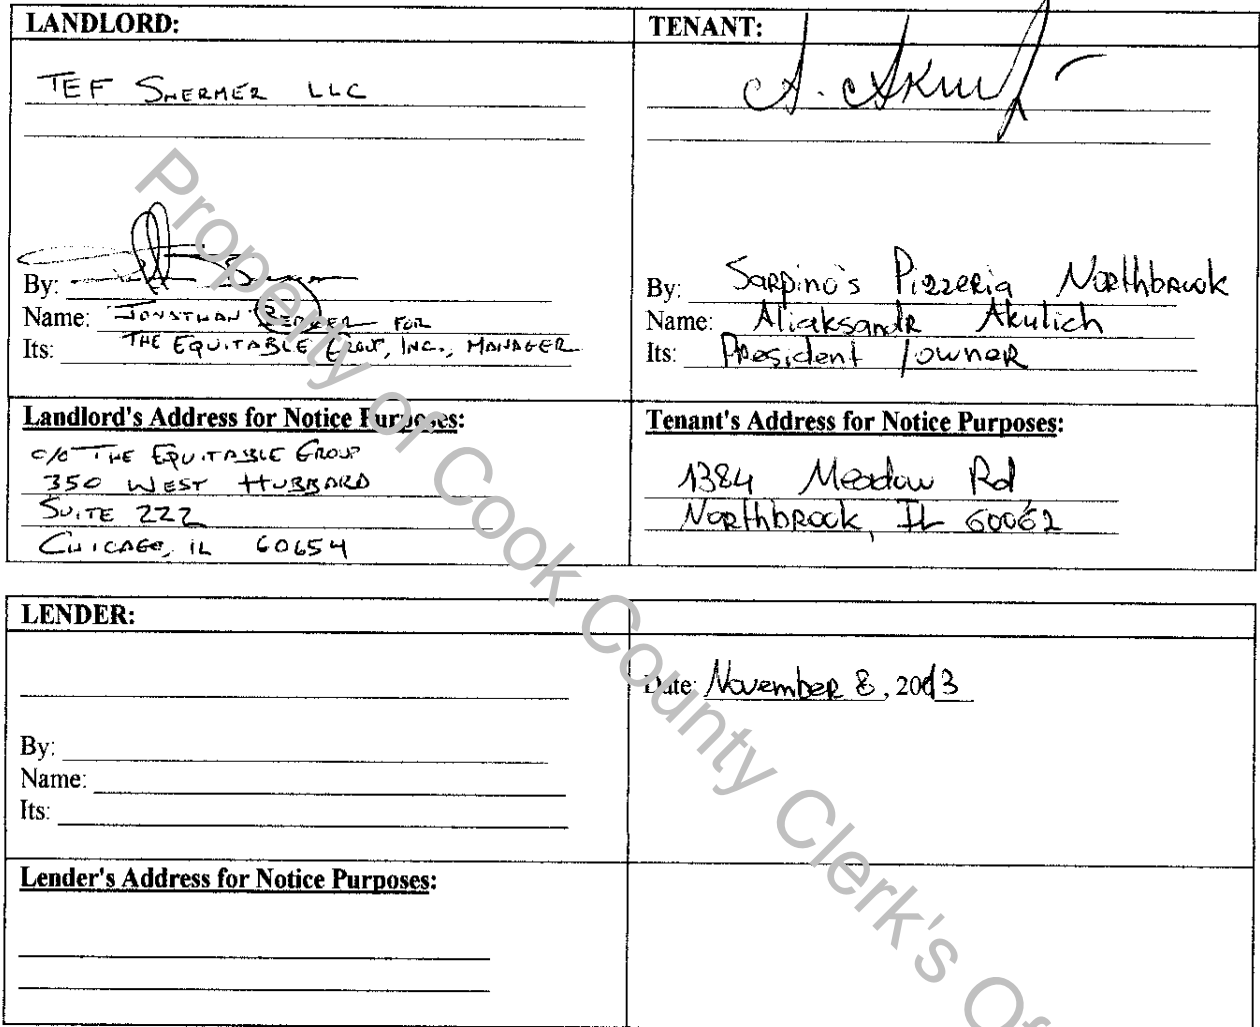 LANDLORD:
TEF SHERMER LLC
By:
Name: JONATHAN BERGER FOR
Its: THE EQUITABLE GROUP, INC., MANAGER
TENANT:
A. Akul
By: Sarpino's Pizzeria Northbrook
Name: Aliaksandr Akulich
Its: President /owner
Landlord's Address for Notice Purposes:
c/o THE EQUITABLE GROUP
350 WEST HUBBARD
SUITE 222
CHICAGO, IL 60654
Tenant's Address for Notice Purposes:
1384 Meadow Rd
Northbrook, IL 60062
LENDER:
By:
Name:
Its:
Date: November 8, 2013
Lender's Address for Notice Purposes:
Property of Cook County Clerk's Of